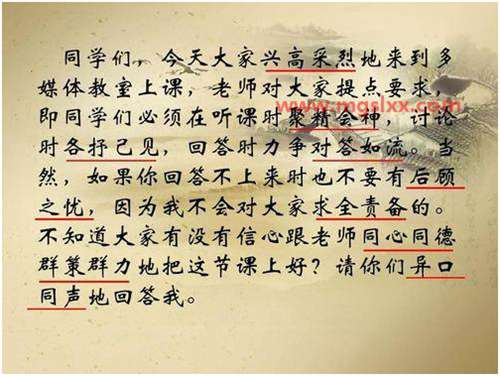 同学们，今天大家兴高采烈地来到多
媒体教室上课，老师对大家提点要求，
www.mgslxx.com
即同学们必须在听课时聚精会神，讨论
时各抒己见，回答时力争对答如流。当
然，如果你回答不上来时也不要有后顾
之忧，因为我不会对大家求全责备的。
不知道大家有没有信心跟老师同心同德
群策群力地把这节课上好？请你们异口
同声地回答我。